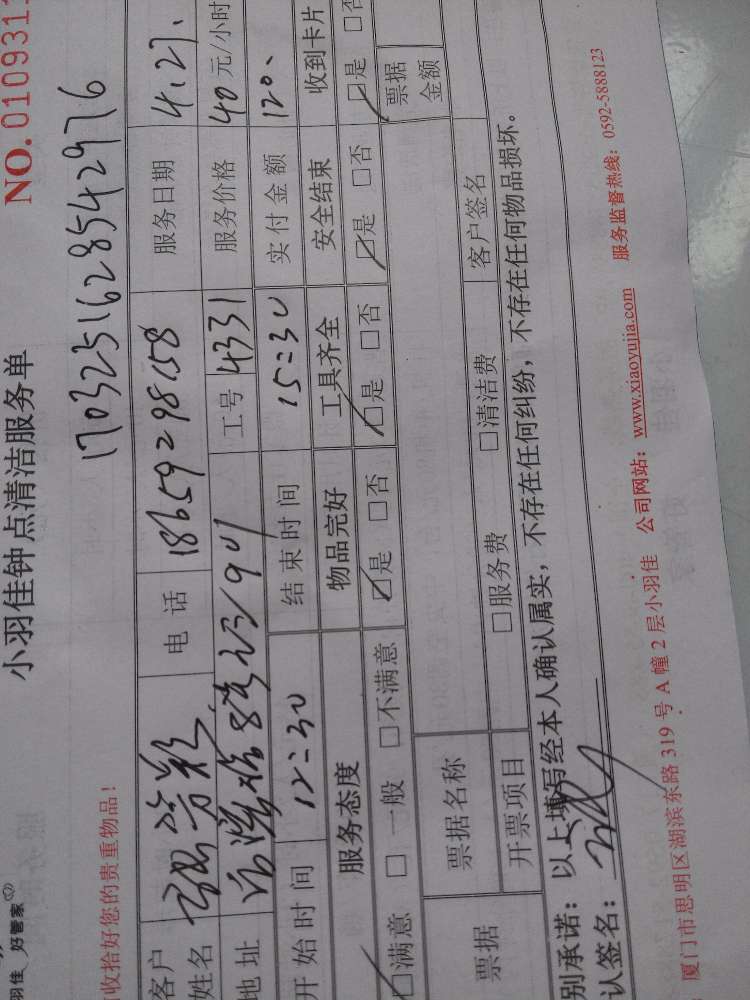 小羽佳钟点清洁服务单
NO. 0109311
羽佳 好管家
收拾好您的贵重物品！
1703251628542976
客户姓名 电话 18659298158 服务日期 4.27.
地址 工号 4331 服务价格 40元/小时
开始时间 12:30 结束时间 15:30 实付金额 120.
服务态度 物品完好 工具齐全 安全结束 收到卡片
☑满意 □一般 □不满意 ☑是 □否 ☑是 □否 ☑是 □否 ☑是 □否
票据 票据名称 票据金额
开票项目 □服务费 □清洁费 客户签名
别承诺：以上填写经本人确认属实，不存在任何纠纷，不存在任何物品损坏。
认签名：
厦门市思明区湖滨东路 319 号 A 幢 2 层小羽佳 公司网站：www.xiaoyujia.com 服务监督热线：0592-5888123